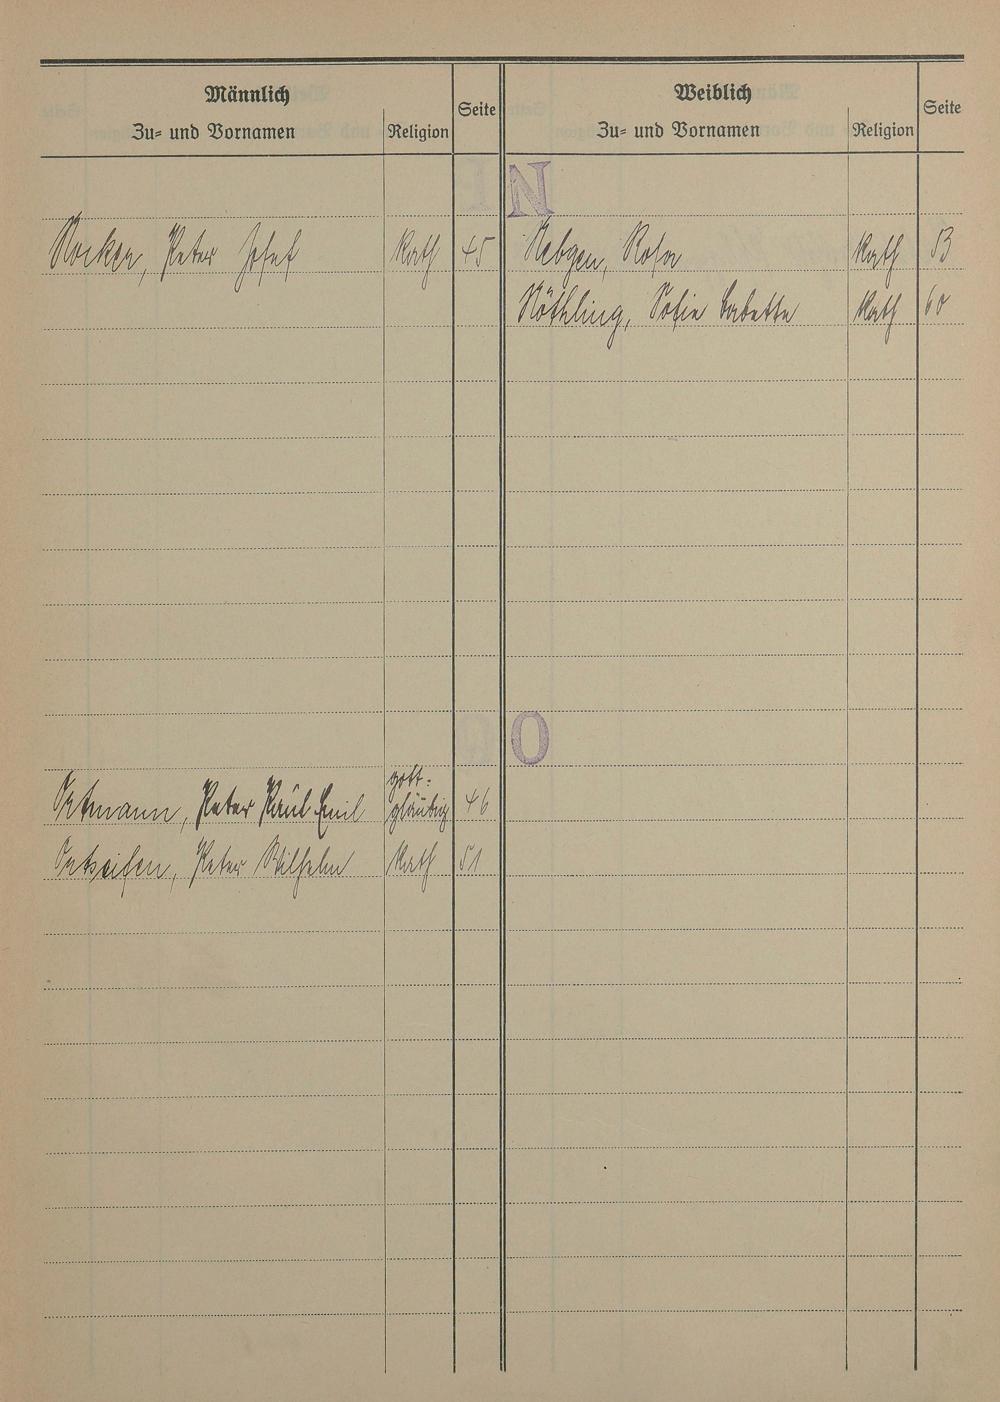 Männlich
Zu= und Vornamen
Religion
Seite
Weiblich
Zu= und Vornamen
Religion
Seite
N
Nocken, Peter Josef Kath 45
Nebgen, Rosa Kath 53
Nöthling, Sofie Babette Kath 60
O
gott=
Ortmann, Peter Paul Emil gläubig 46
Ortseifen, Peter Wilhelm Kath 51